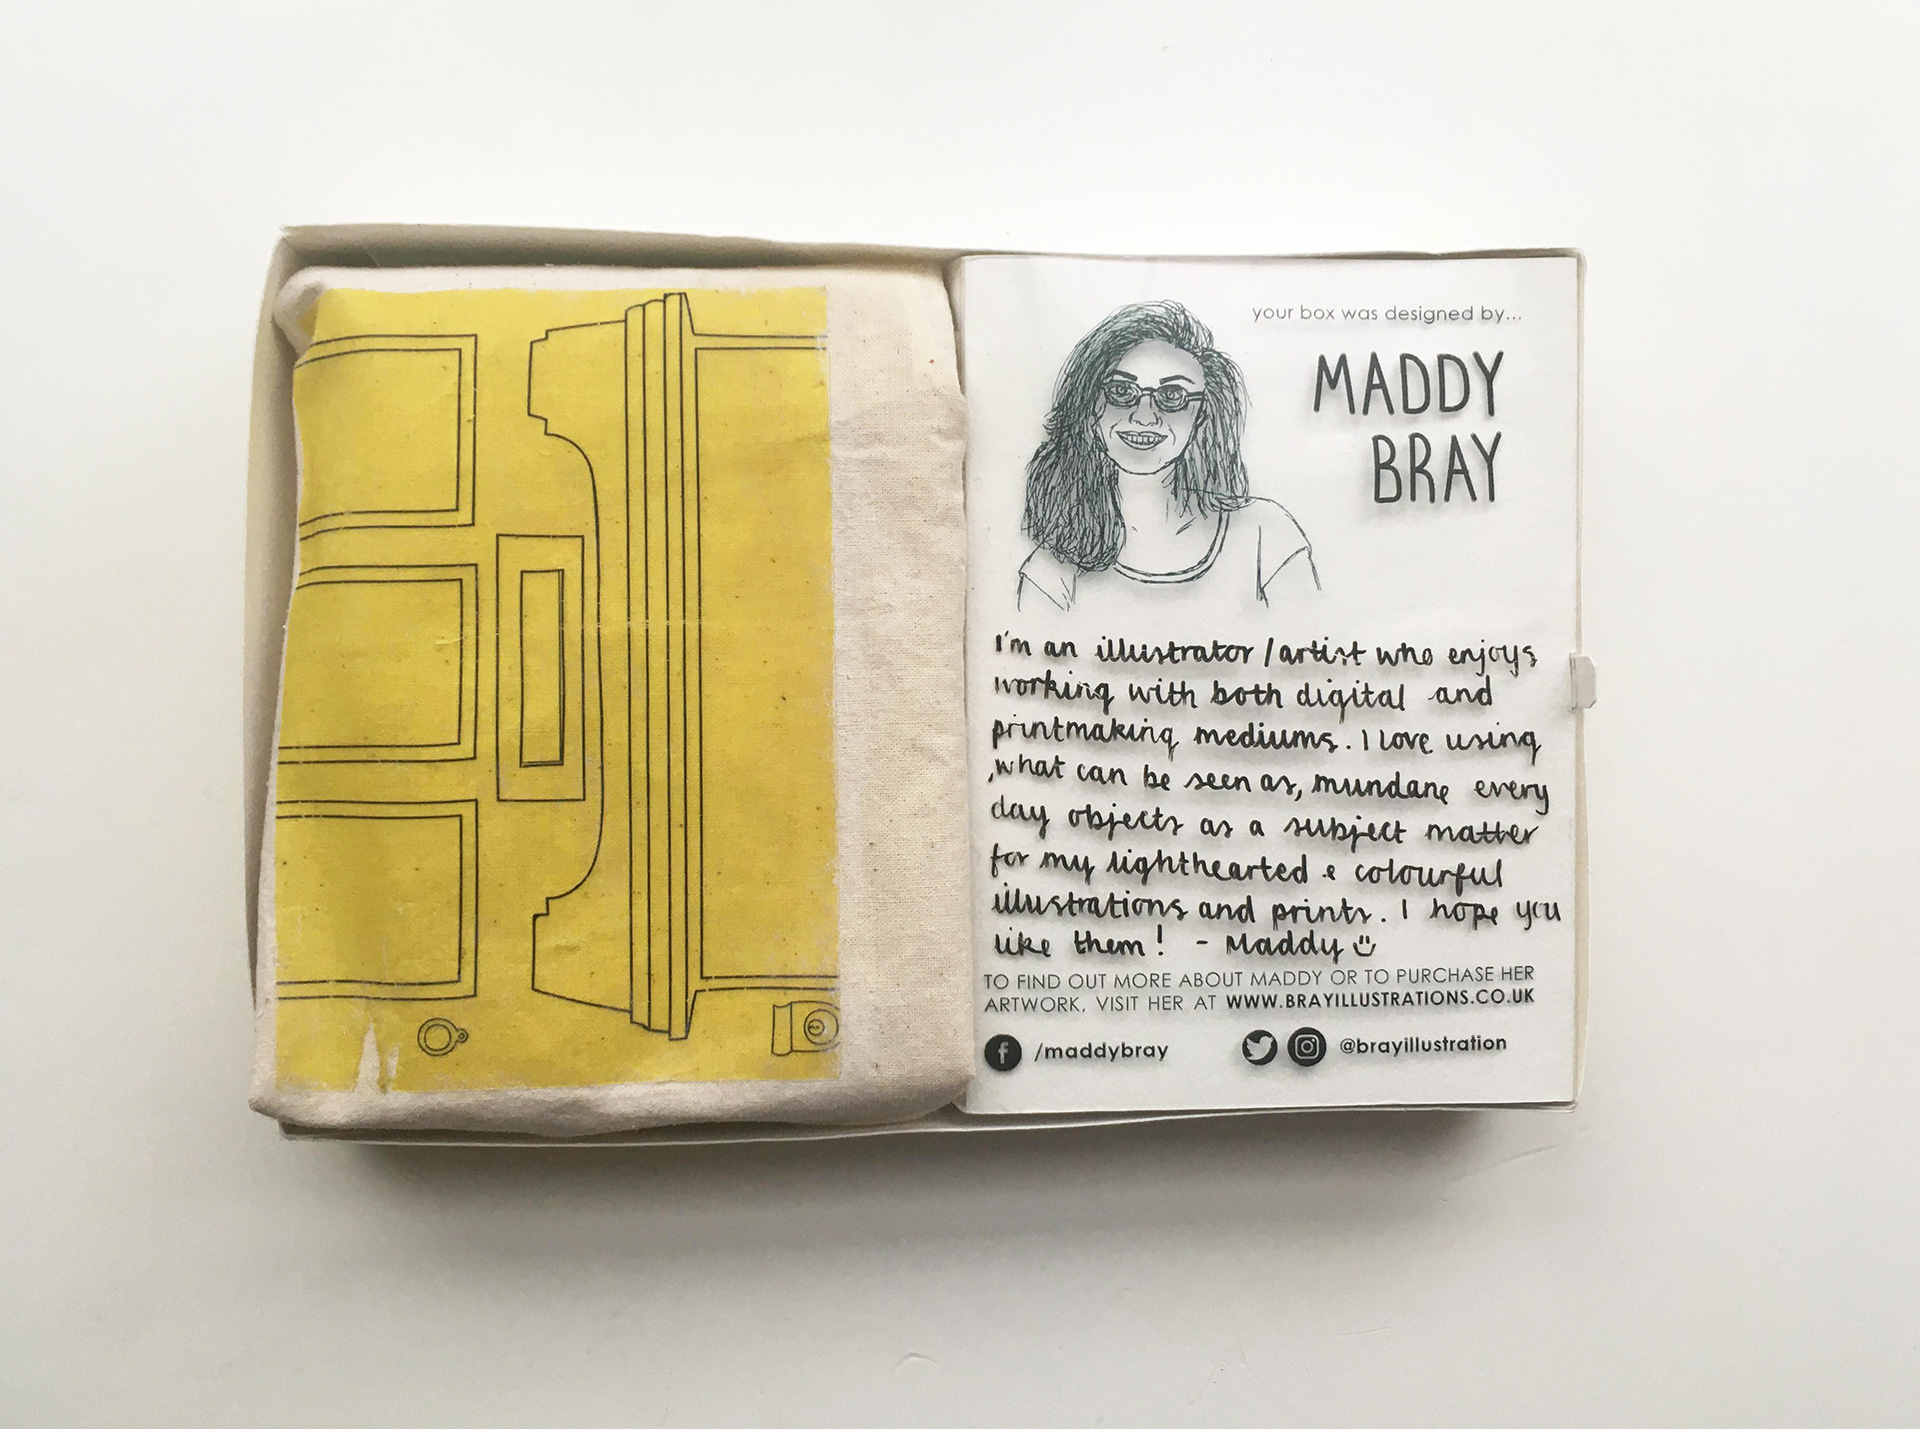 your box was designed by...
MADDY
BRAY
I'm an illustrator/artist who enjoys
working with both digital and
printmaking mediums. I love using
,what can be seen as, mundane every
day objects as a subject matter
for my lighthearted & colourful
illustrations and prints. I hope you
like them! - Maddy
TO FIND OUT MORE ABOUT MADDY OR TO PURCHASE HER
ARTWORK, VISIT HER AT WWW.BRAYILLUSTRATIONS.CO.UK
/maddybray @brayillustration